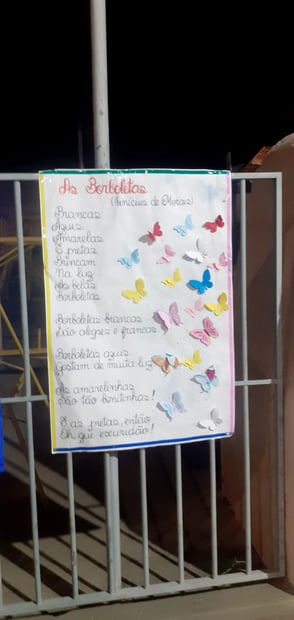 As Borboletas
(Vinícius de Moraes)
Brancas
Azuis
Amarelas
E pretas
Brincam
Na luz
As belas
Borboletas
Borboletas brancas
São alegres e francas.
Borboletas azuis
Gostam de muita luz.
As amarelinhas
São tão bonitinhas!
E as pretas, então
Oh, que escuridão!